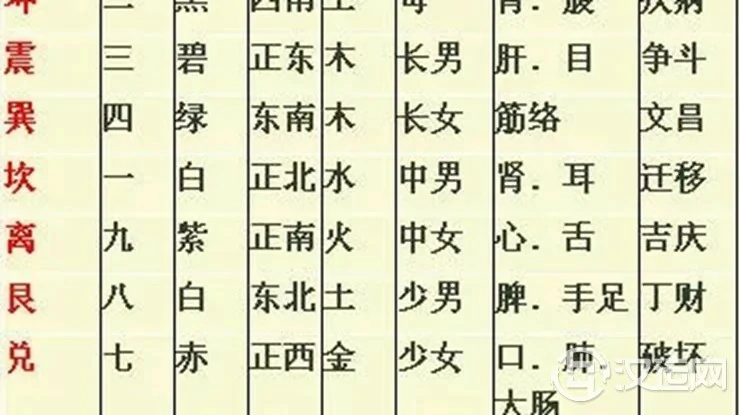 坤 二 黑 西南 土 母 疾病
震 三 碧 正东 木 长男 肝．目 争斗
巽 四 绿 东南 木 长女 筋络 文昌
坎 一 白 正北 水 中男 肾．耳 迁移
离 九 紫 正南 火 中女 心．舌 吉庆
艮 八 白 东北 土 少男 脾．手足 丁财
兑 七 赤 正西 金 少女 口．肺．破坏
大肠
汉程网